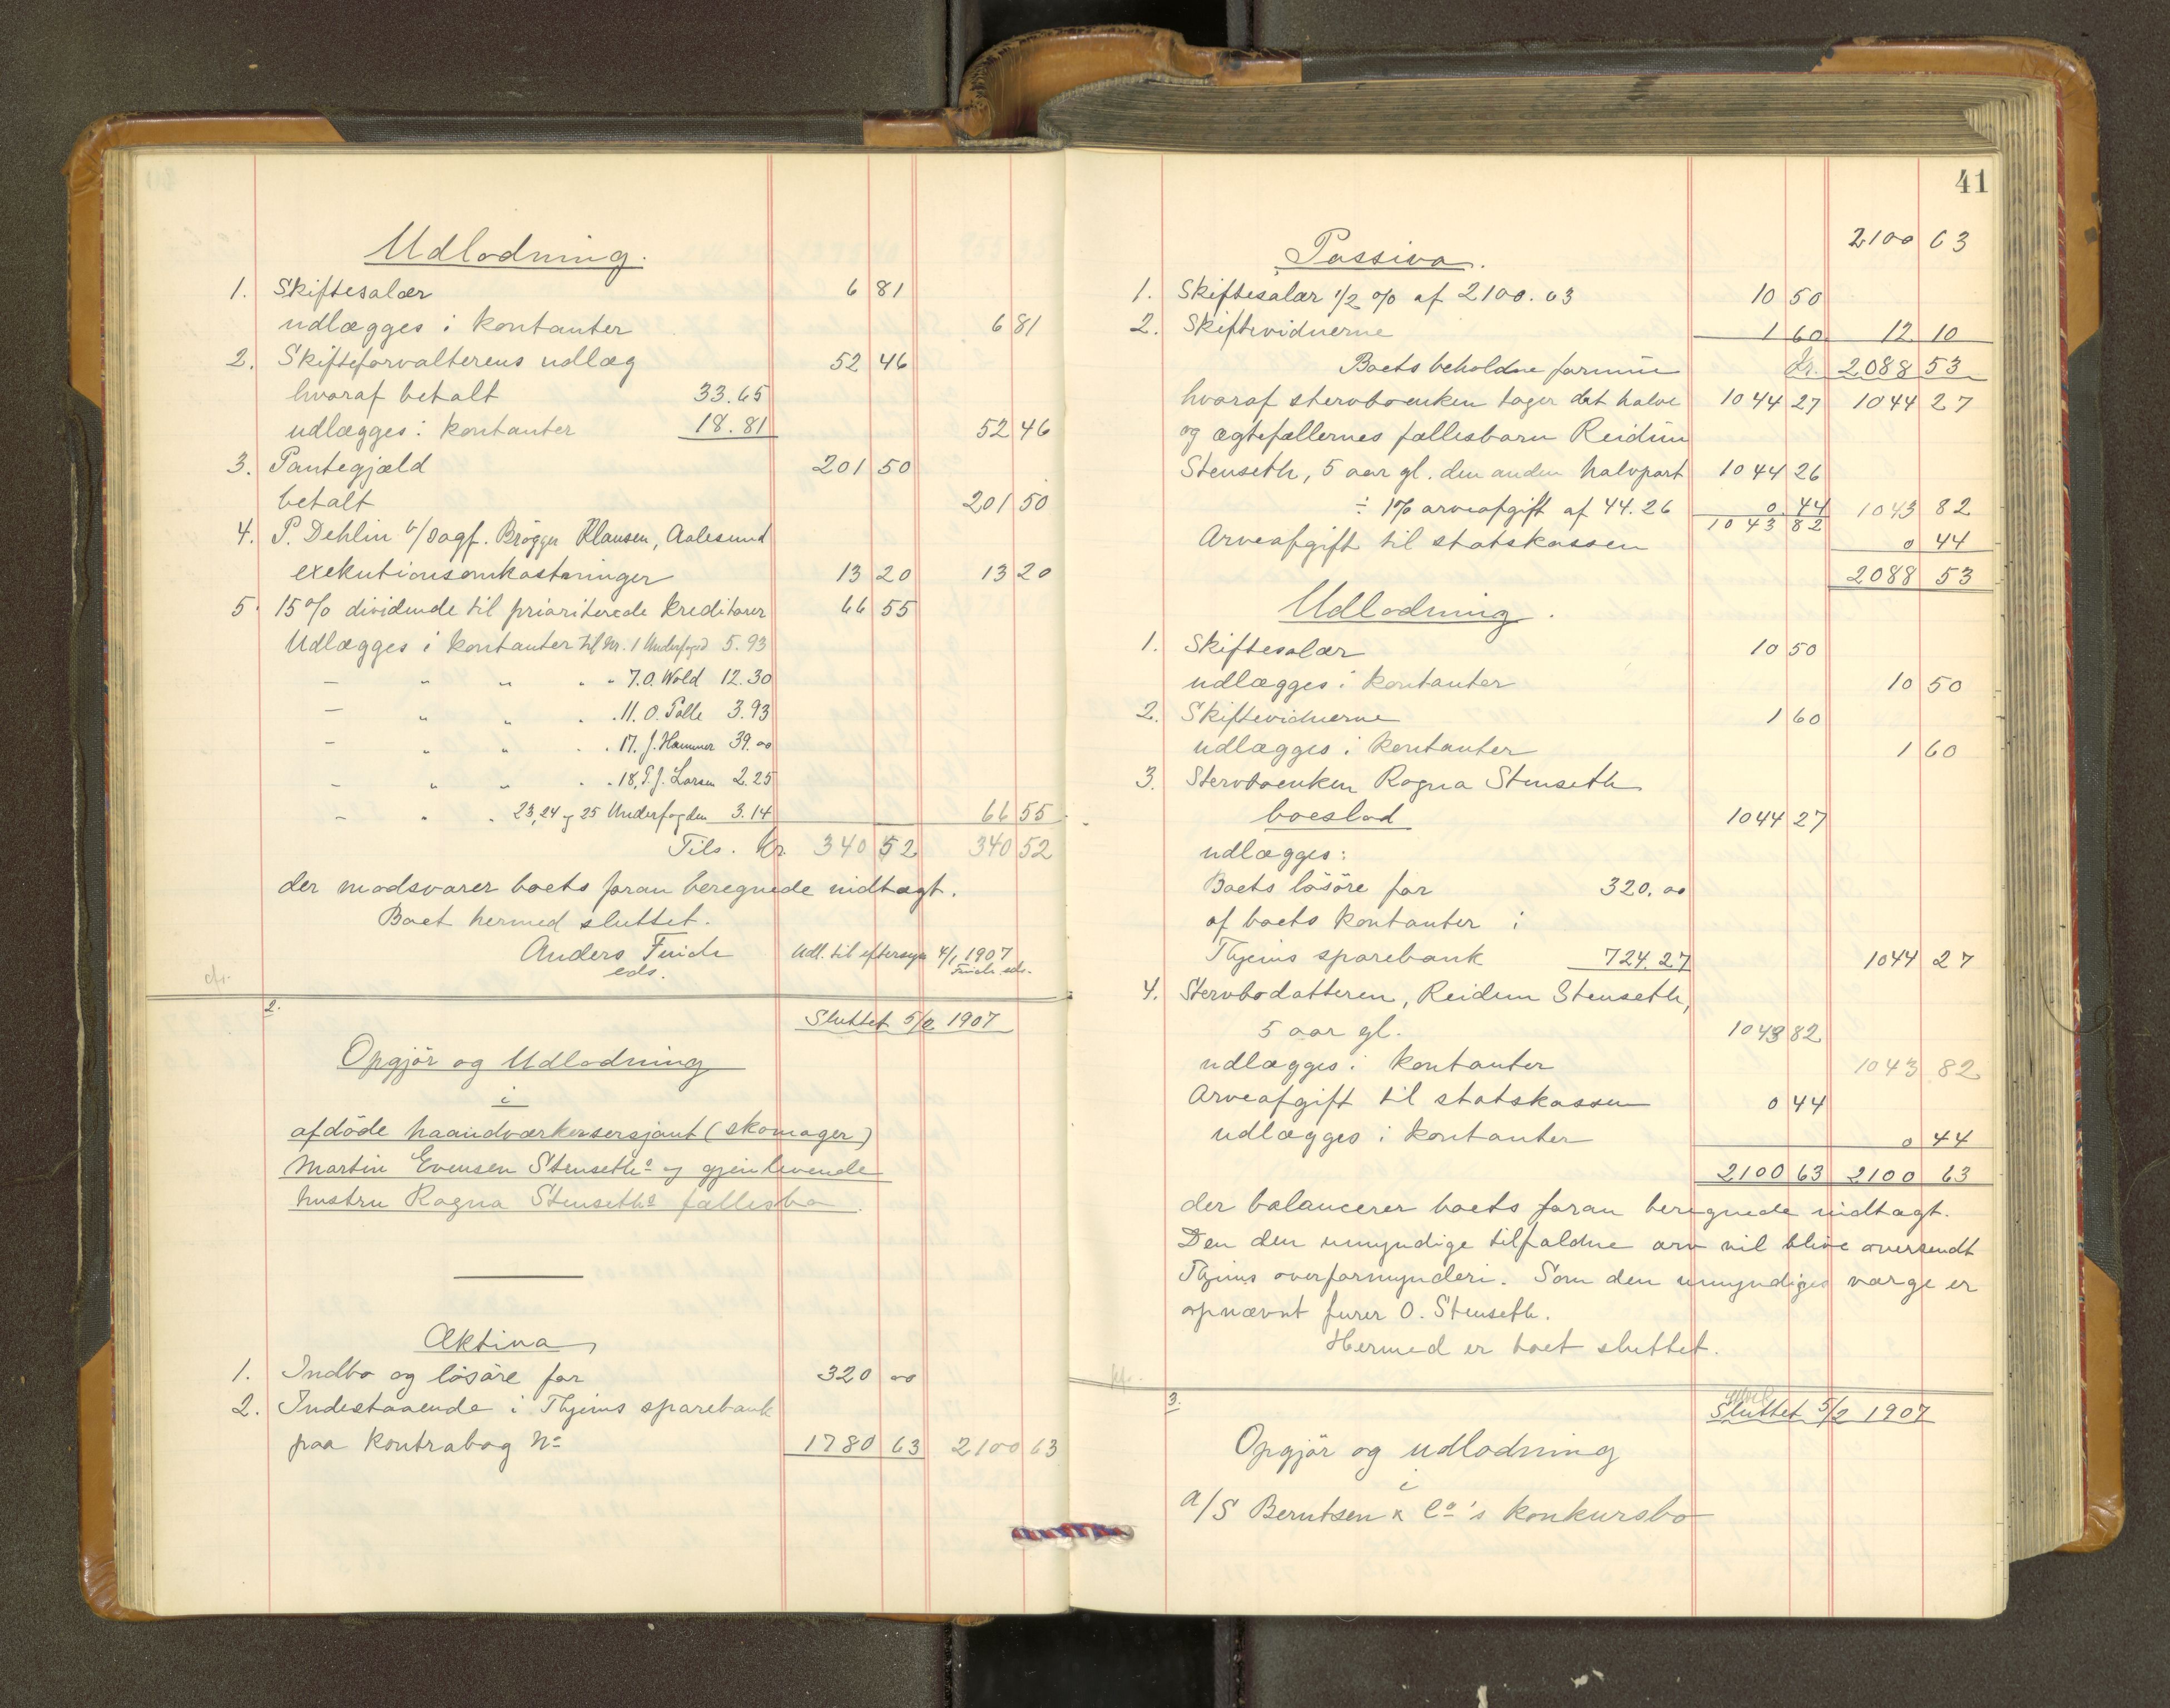 Udlodning.
1. Skiftesalær 6 81
udlægges i kontanter 6 81
2. Skifteforvalterens udlæg 52 46
hvoraf betalt 33.65
udlægges i kontanter 18.81 52 46
3. Pantegjæld 201 50
betalt 201 50
4. P. Dehlin v/sagf. Brøgger Klausen, Aalesund
exekutionsomkostninger 13 20 13 20
5. 15% dividende til prioriterede kreditorer 66 55
Udlægges i kontanter til Nr. 1 Underfoged 5.93
— " " " " 7. O. Wold 12.30
— " " " " 11. O. Tolle 3.93
— " " " " 17. J. Hammer 39.00
— " " " " 18, P. J. Larsen 2.25
— " " 23, 24 og 25 Underfogden 3.14 66 55
Tils. Kr. 340 52 340 52
der modsvarer boets foran beregnede indtægt.
Boet hermed sluttet.
Anders Færden
eds.
Udl. til eftersyn 4/1 1907
cfr.
2.
Sluttet 5/2 1907
Opgjör og Udlodning
i
afdöde haandværkersersjant (skomager)
Martin Evensen Stenseths og gjenlevende
hustru Ragna Stenseths fællesbo.
Aktiva
1. Indbo og lösöre for 320 00
2. Indestaaende i Thjems sparebank
paa kontrabog No 1780 63 2100 63
41
2100 63
Passiva.
1. Skiftesalær 1/2 % af 2100.63 10 50
2. Skiftevidnerne 1 60 12 10
Boets beholdne formue Kr. 2088 53
hvoraf stervboenken tager det halve 1044 27 1044 27
og ægtefællernes fællesbarn Reidun
Stenseth, 5 aar gl. den anden halvpart 1044 26
÷ 1% arveafgift af 44.26 0 44 1043 82
1043 82
Arveafgift til statskassen 0 44
2088 53
Udlodning.
1. Skiftesalær 10 50
udlægges i kontanter 10 50
2. Skiftevidnerne 1 60
udlægges i kontanter 1 60
3. Stervboenken Ragna Stenseth
boeslod 1044 27
udlægges:
Boets lösöre for 320.00
af boets kontanter i
Thjems sparebank 724.27 1044 27
4. Stervbodatteren, Reidun Stenseth,
5 aar gl. 1043 82
udlægges i kontanter 1043 82
Arveafgift til statskassen 0 44
udlægges i kontanter 0 44
2100 63 2100 63
der balancerer boets foran beregnede indtægt.
Den den umyndige tilfaldne arv vil blive oversendt
Thjems overformynderi. Som den umyndiges værge er
opnævnt furer O. Stenseth.
Hermed er boet sluttet.
3.
Sluttet 5/2 1907
Opgjör og udlodning
i
A/S Berntsen & Co's konkursbo